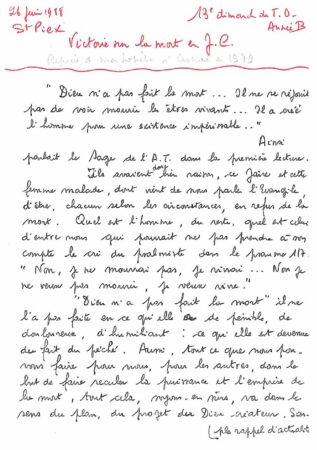 26 juin 1988
St Piex
13e dimanch du T.O.
Année B
Victoire sur la mort en J.C.
Reprise de mon homélie de 1979
"Dieu n'a pas fait la mort... Il ne se réjouit
pas de voir mourir les êtres vivants... Il a créé
l'homme pour une existence impérissable.."
Ainsi
parlait le Sage de l'A.T. dans la première lecture.
Ils avaient donc bien raison, ce Jaïre et cette
femme malade, dont vient de nous parler l'Evangile,
d'être, chacun selon les circonstances, en refus de la
mort. Quel est l'homme, du reste, quel est celui
d'entre nous qui pourrait ne pas prendre à son
compte le cri du psalmiste dans le psaume 117
"Non, je ne mourrai pas, je vivrai... Non je
ne veux pas mourir, je veux vivre."
"Dieu n'a pas fait la mort" il ne
l'a pas faite en ce qu'elle a de pénible, de
douloureux, d'humiliant : ce qu'elle est devenue
du fait du péché. Aussi, tout ce que nous pou-
vons faire pour nous, pour les autres, dans le
but de faire reculer la puissance et l'emprise de
la mort, tout cela, soyons-en sûrs, va dans le
sens du plan, du projet du Dieu créateur. Son-
(pls rappel d'actualité